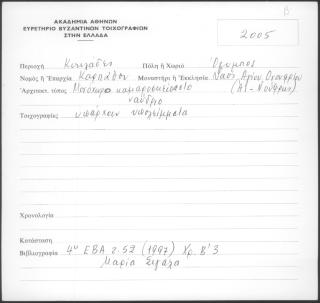 Β
ΑΚΑΔΗΜΙΑ ΑΘΗΝΩΝ
ΕΥΡΕΤΗΡΙΟ ΒΥΖΑΝΤΙΝΩΝ ΤΟΙΧΟΓΡΑΦΙΩΝ
ΣΤΗΝ ΕΛΛΑΔΑ
2005
Περιοχή Κυκλάδες Πόλη ἤ Χωριό Όλυμπος
Νομός ἤ Ἐπαρχία Καρπάθου Μοναστήρι ἤ Ἐκκλησία Ναός Αγίου Ονουφρίου
Ἀρχιτεκτ. τύπος Μονόχωρο καμαροσκέπαστο (Αϊ-Νούφρης)
ναΰδριο
Τοιχογραφίες υπάρχουν υπολείμματα
Χρονολογία
Κατάσταση
Βιβλιογραφία 4η ΕΒΑ 2.52 (1997) Χρ. Β'3
Μαρία Σιγάλα